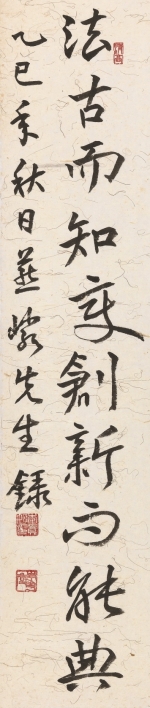 法古而知变創新而能典
乙巳年秋日燕先生録